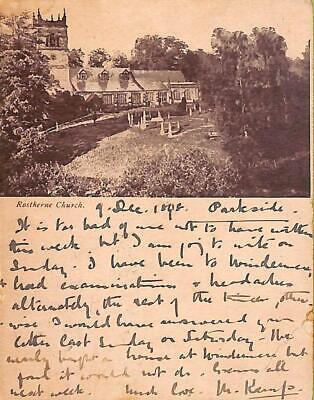 Rostherne Church.
9. Dec. 1898. Parkside.
It is too bad of me not to have written
this week but I am going to write on
Sunday. I have been to Windermere,
& had examinations & headaches
alternately, the rest of the time, other-
wise I would have answered your
letter last Sunday or Saturday. We
nearly bought a house at Windermere but
find it would not do. Exams all
next week. Much love. M. Kemp.